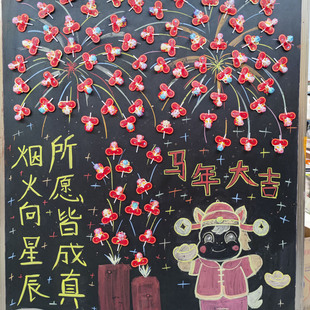 马年大吉
烟火向星辰
所愿皆成真